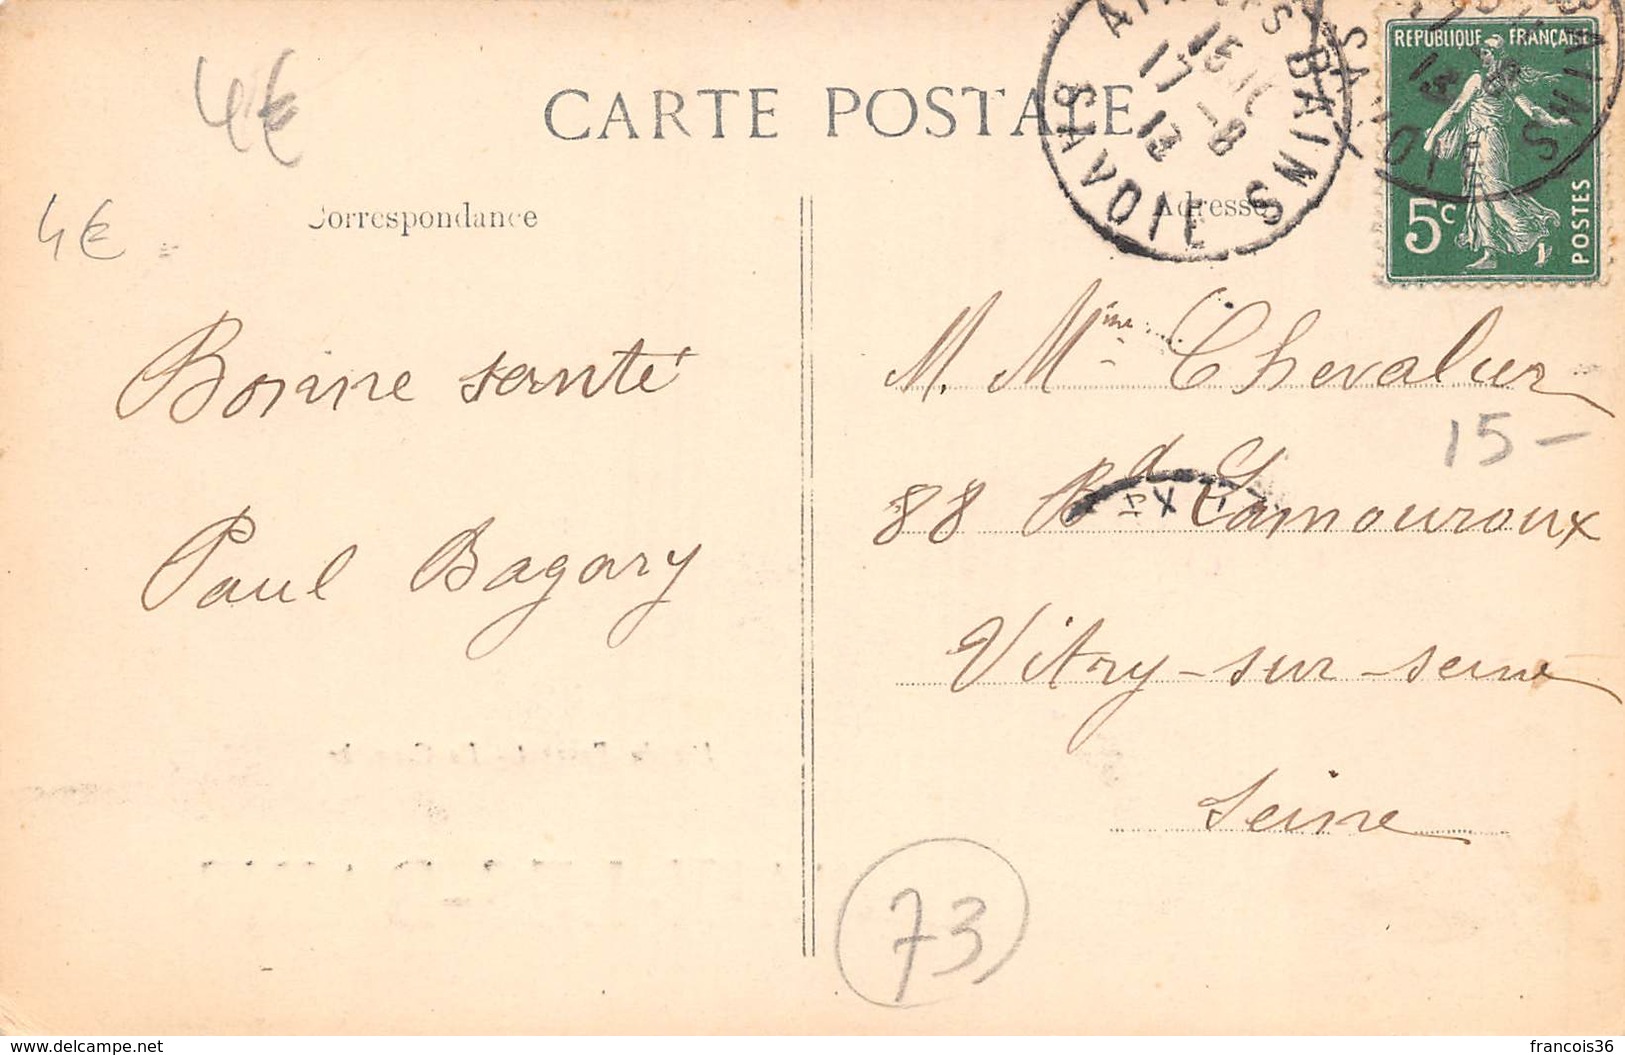 4€
CARTE POSTALE
AIX LES BAINS
SAVOIE
15
17 - 8
13
REPUBLIQUE FRANÇAISE
5c
POSTES
4€
Correspondance
Adresse
Bonne santé
Paul Bagary
M. Mme Chevalier
15 -
88 Bd Lamouroux
Vitry-sur-seine
Seine
73
delcampe.net
francois36